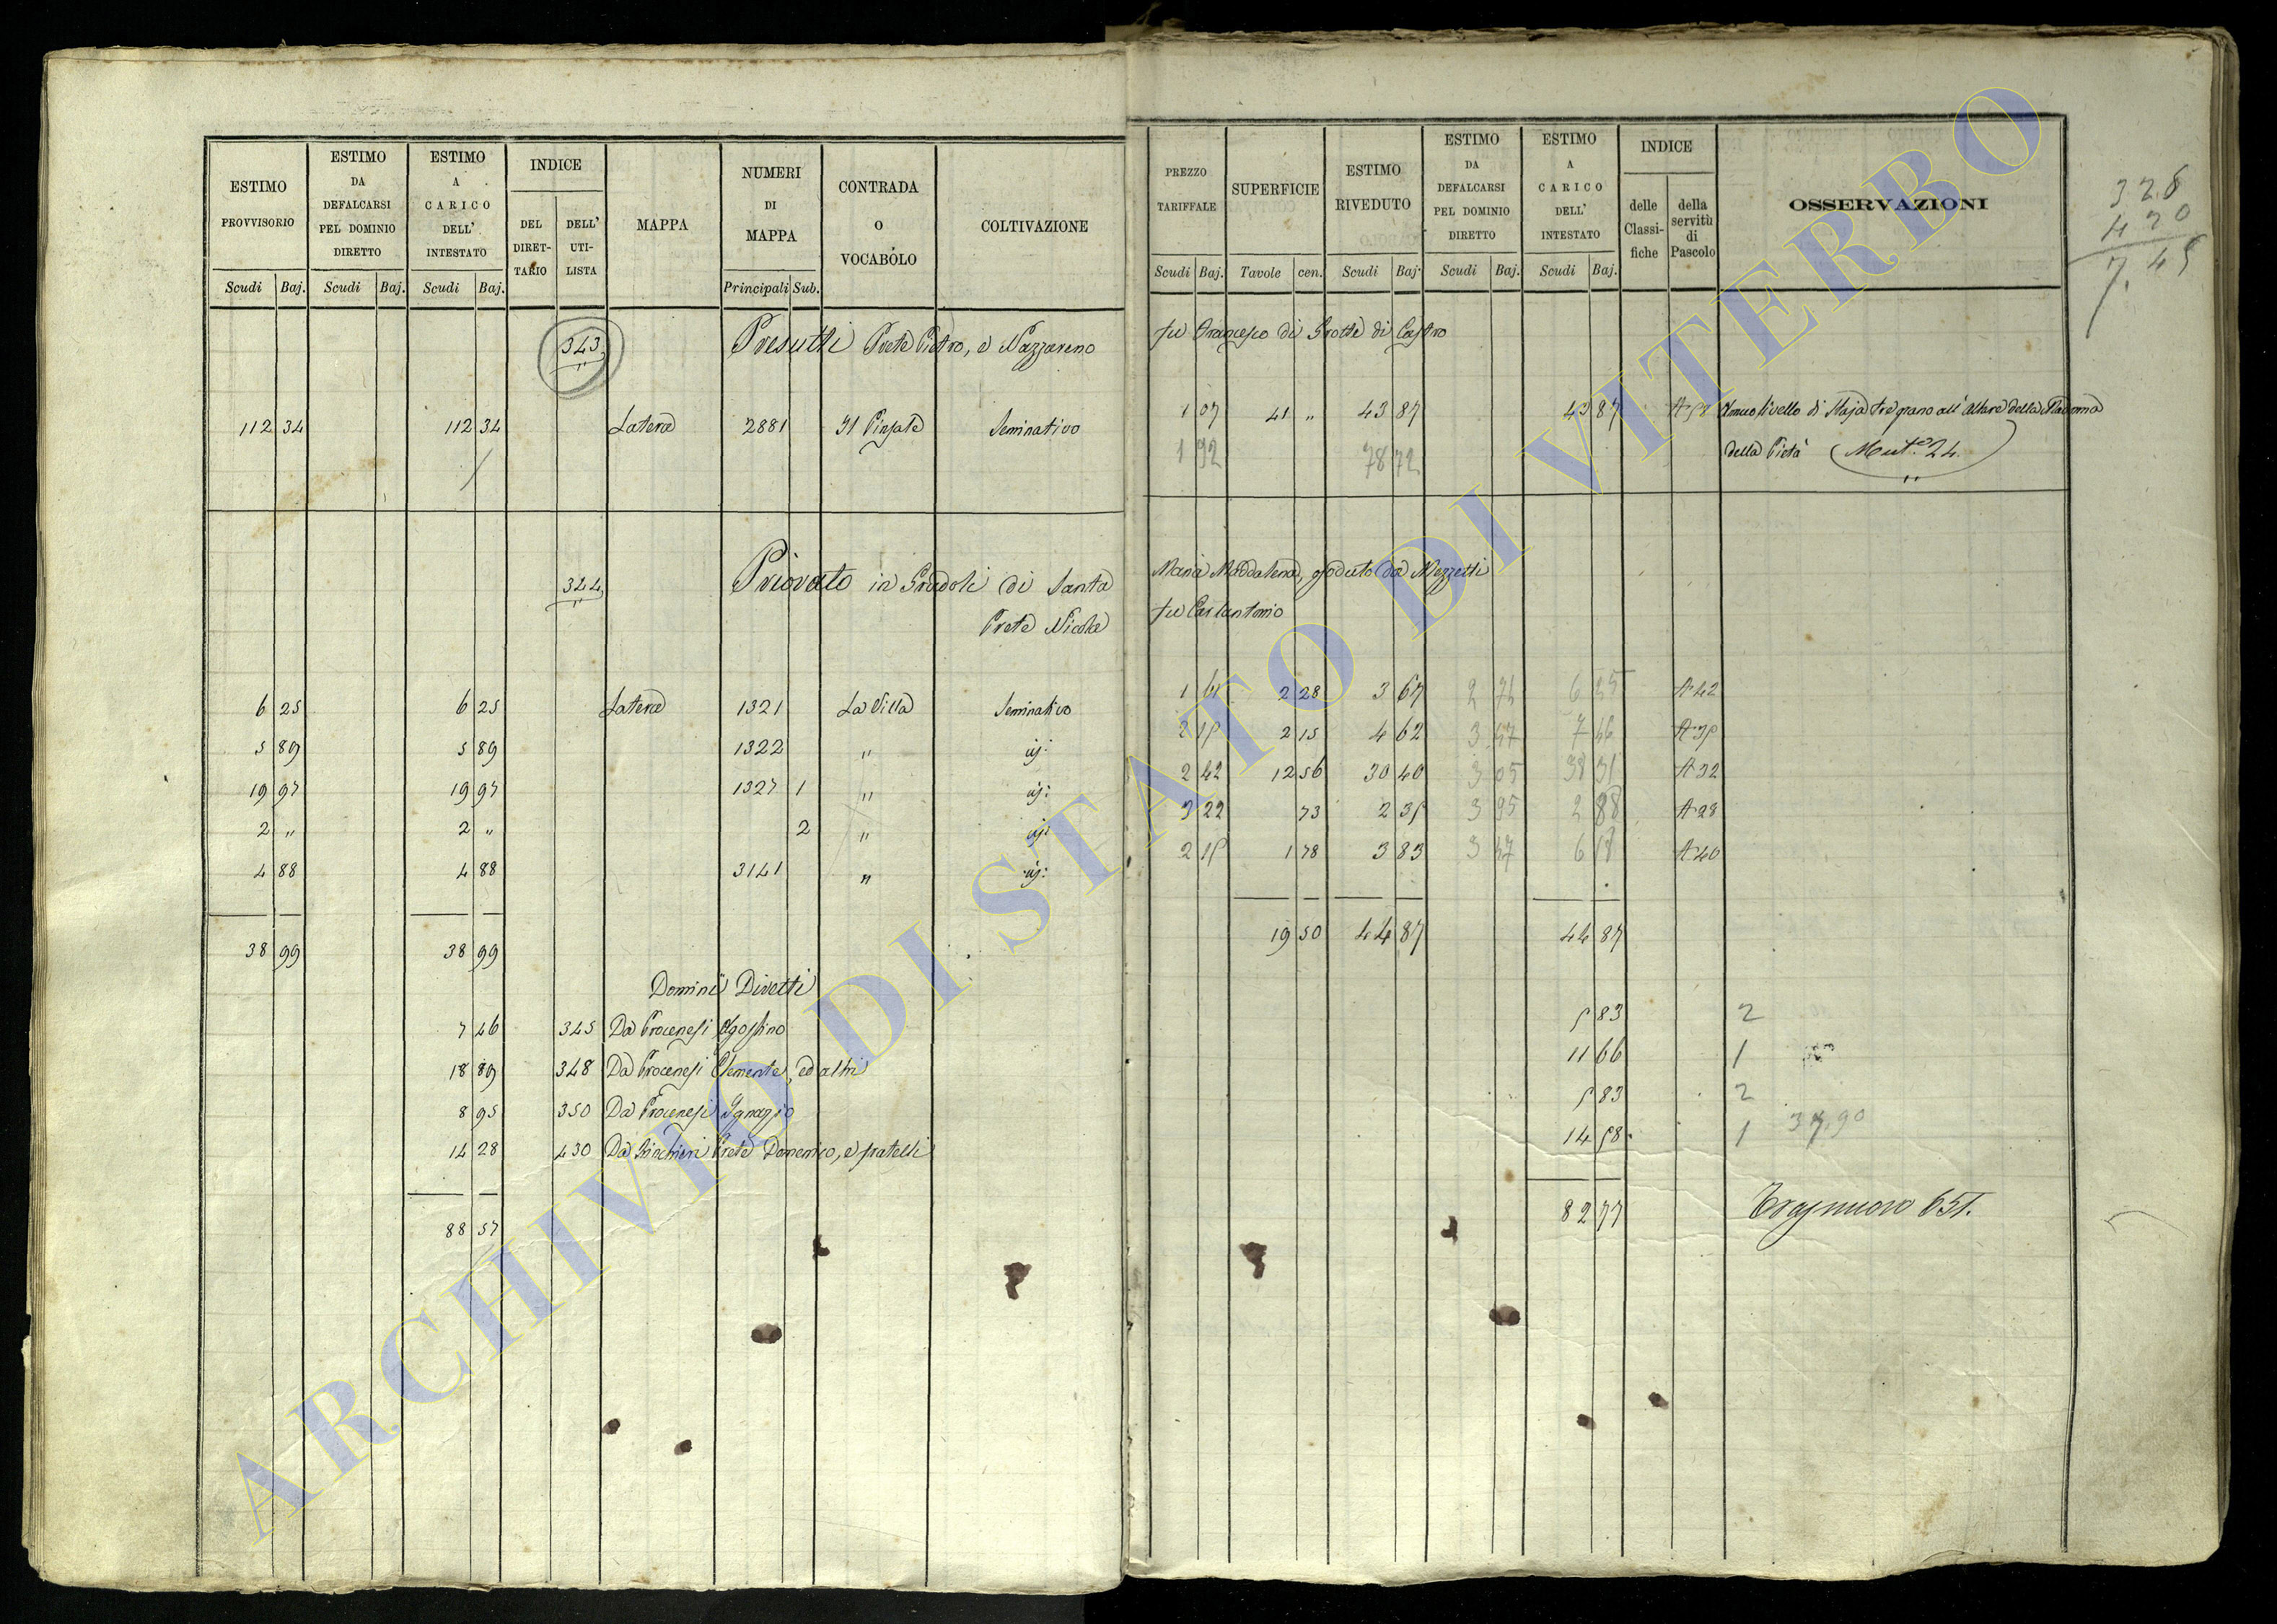 ESTIMO PROVVISORIO
ESTIMO DA DEFALCARSI PEL DOMINIO DIRETTO
ESTIMO A CARICO DELL' INTESTATO
INDICE
DEL DIRETTARIO
DELL' UTILISTA
MAPPA
NUMERI DI MAPPA
CONTRADA O VOCABOLO
COLTIVAZIONE
Scudi Baj. Scudi Baj. Scudi Baj. Principali Sub.
343 Presutti Prete Pietro, e Nazzareno
112 34 112 34 Latera 2881 Seminativo
344 Priorato in Gradoli di Santa
Prete Nicola
6 25 6 25 Latera 1321 La Villa Seminativo
5 89 5 89 1322 " id:
19 97 19 97 1327 1 " id:
2 " 2 " 2 " id:
4 88 4 88 3141 " id:
38 99 38 99
Dominii Diretti
7 46 345 Da Procenesi Agostino
18 89 348 Da Procenesi Clemente, ed altri
8 95 350 Da Procenesi Ignazio
14 28 430 Da Prete Domenico, e fratelli
88 57
PREZZO TARIFFALE
SUPERFICIE
ESTIMO RIVEDUTO
ESTIMO DA DEFALCARSI PEL DOMINIO DIRETTO
ESTIMO A CARICO DELL' INTESTATO
INDICE
delle Classifiche
della servitù di Pascolo
OSSERVAZIONI
Scudi Baj. Tavole cen. Scudi Baj. Scudi Baj. Scudi Baj.
fu Francesco di Grotte di Castro
1 07 41 " 43 87 43 87 Annuo livello di Staja tre grano all' Altare della Madonna
1 92 78 72 della Pietà Mut.e 24
Maria Maddalena, goduto da Mezzetti
fu Carlantonio
1 61 2 28 3 67 2 74 6 25 A 42
2 15 2 15 4 62 3 47 7 46
2 42 12 56 30 40 3 05 38 31 A 32
3 22 73 2 35 3 95 2 88 A 28
2 15 1 78 3 83 3 47 6 18 A 40
19 50 44 87 44 87
5 83 2
11 66 1
5 83 2
14 58 1 37,90
82 77
ARCHIVIO DI STATO DI VITERBO